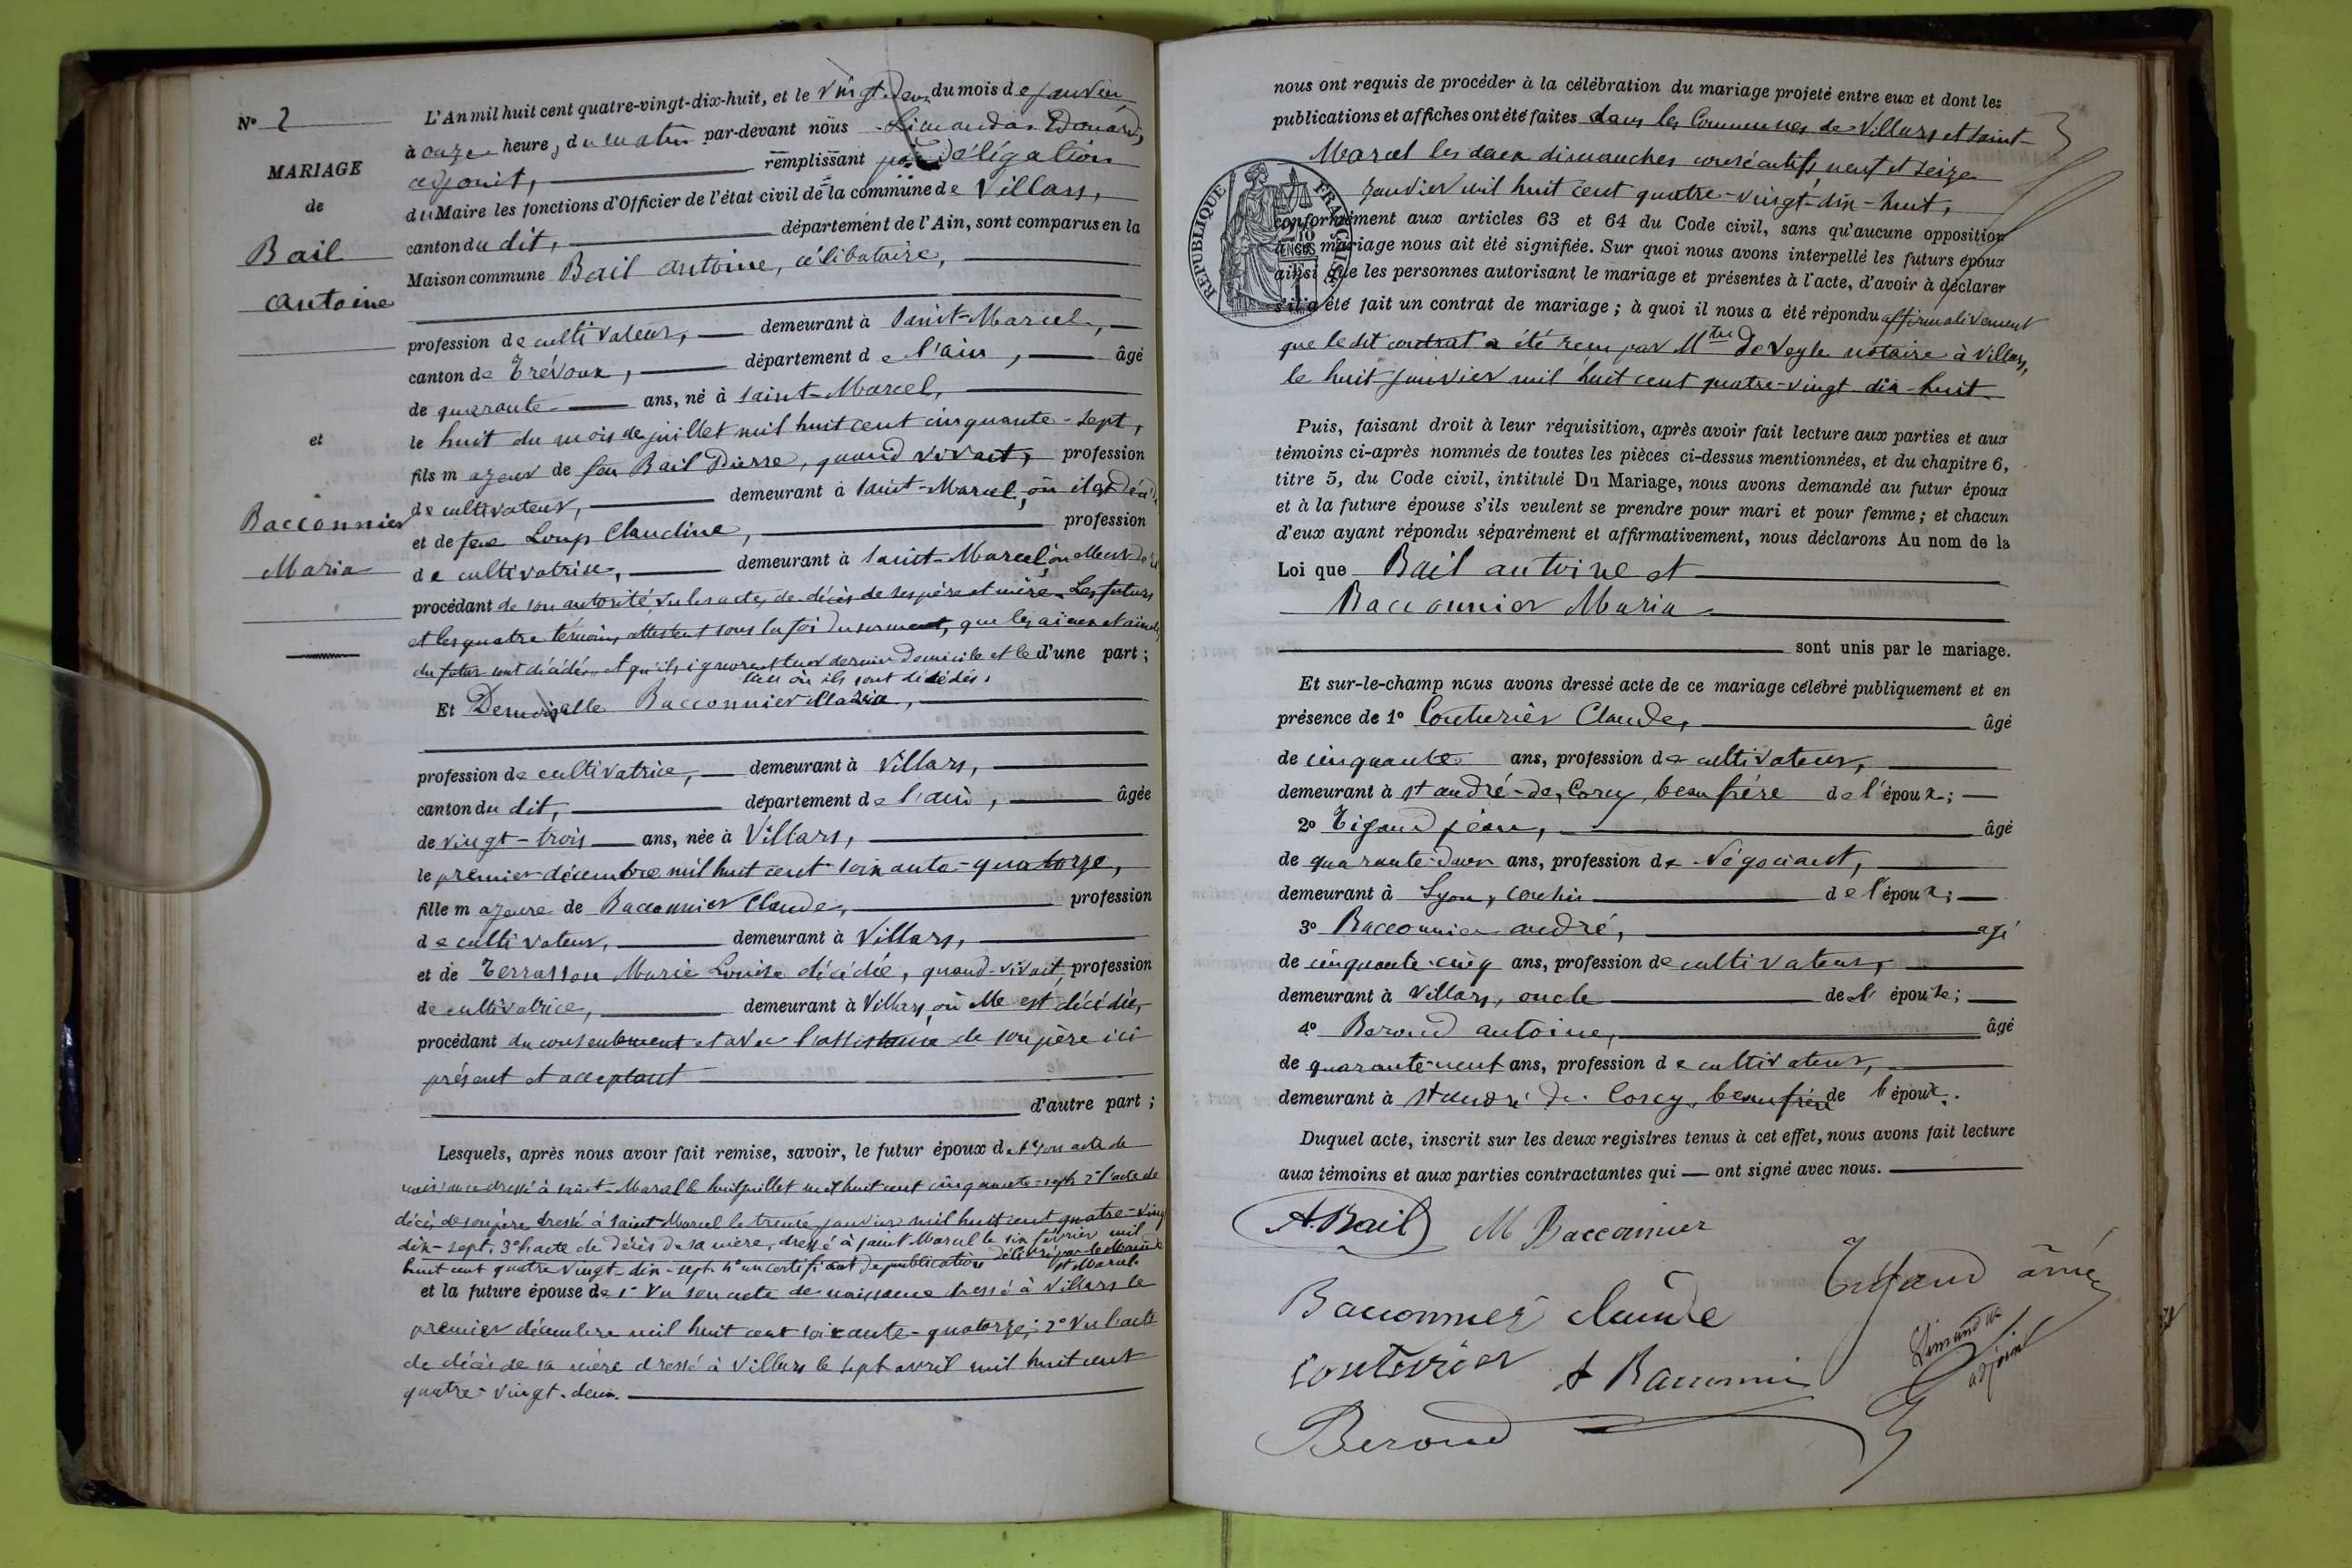 N° 2
MARIAGE
de
Bail
Antoine
et
Bacconnier
Maria
L'An mil huit cent quatre-vingt-dix-huit, et le vingt-deux du mois de janvier
à onze heure, du matin par-devant nous Limandas Edouard,
adjoint, remplissant par délégation
du Maire les fonctions d'Officier de l'état civil de la commune de Villars,
canton du dit, département de l'Ain, sont comparus en la
Maison commune Bail Antoine, célibataire,
profession de cultivateur, demeurant à Saint-Marcel,
canton de Trévoux, département de l'Ain, âgé
de quarante ans, né à Saint-Marcel,
le huit du mois de juillet mil huit cent cinquante-sept,
fils majeur de feu Bail Pierre, quand vivait, profession
de cultivateur, demeurant à Saint-Marcel, où il est décédé
et de feue Loup Claudine, profession
de cultivatrice, demeurant à Saint-Marcel où
procédant de son autorité, vu les actes de décès de ses père et mère. Les futurs
et les quatre témoins attestent sous la foi du serment, que les aïeux et aïeules
du futur sont décédés et qu'ils ignorent leur dernier domicile et le d'une part;
lieu où ils sont décédés.
Et Demoiselle Bacconnier Maria,
profession de cultivatrice, demeurant à Villars,
canton du dit, département de l'Ain, âgée
de vingt-trois ans, née à Villars,
le premier décembre mil huit cent soixante-quatorze,
fille majeure de Bacconnier Claude, profession
de cultivateur, demeurant à Villars,
et de Terrasson Marie Louise décédée, quand vivait, profession
de cultivatrice, demeurant à Villars, où elle est décédée,
procédant du consentement et avec l'assistance de son père ici
présent et acceptant
d'autre part;
Lesquels, après nous avoir fait remise, savoir, le futur époux de 1° son acte de
naissance dressé à Saint-Marcel le huit juillet mil huit cent cinquante-sept 2° l'acte de
décès de son père dressé à Saint Marcel le trente janvier mil huit cent quatre-vingt
dix-sept, 3° l'acte de décès de sa mère, dressé à Saint Marcel le six février mil
huit cent quatre vingt-dix-sept 4° un certificat de publication délivré par le Maire de
St Marcel
et la future épouse de 1° Vu son acte de naissance dressé à Villars le
premier décembre mil huit cent soixante-quatorze; 2° Vu l'acte
de décès de sa mère dressé à Villars le sept avril mil huit cent
quatre-vingt-deux.
nous ont requis de procéder à la célébration du mariage projeté entre eux et dont les
publications et affiches ont été faites dans les Communes de Villars et Saint-
Marcel les deux dimanches consécutifs neuf et seize
janvier mil huit cent quatre-vingt-dix-huit,
RÉPUBLIQUE FRANÇAISE
conformément aux articles 63 et 64 du Code civil, sans qu'aucune opposition
au mariage nous ait été signifiée. Sur quoi nous avons interpellé les futurs époux
ainsi que les personnes autorisant le mariage et présentes à l'acte, d'avoir à déclarer
s'il a été fait un contrat de mariage; à quoi il nous a été répondu affirmativement
que le dit contrat a été reçu par Mtre de Veyle notaire à Villars,
le huit janvier mil huit cent quatre-vingt dix-huit
Puis, faisant droit à leur réquisition, après avoir fait lecture aux parties et aux
témoins ci-après nommés de toutes les pièces ci-dessus mentionnées, et du chapitre 6,
titre 5, du Code civil, intitulé Du Mariage, nous avons demandé au futur époux
et à la future épouse s'ils veulent se prendre pour mari et pour femme; et chacun
d'eux ayant répondu séparément et affirmativement, nous déclarons Au nom de la
Loi que Bail Antoine et
Bacconnier Maria
sont unis par le mariage.
Et sur-le-champ nous avons dressé acte de ce mariage célébré publiquement et en
présence de 1° Couturier Claude, âgé
de cinquante ans, profession de cultivateur,
demeurant à St André-de-Corcy, beau frère de l'époux;
2° Tigaud Jean, âgé
de quarante-deux ans, profession de Négociant,
demeurant à Lyon, cousin de l'époux;
3° Bacconnier André, agé
de cinquante-cinq ans, profession de cultivateur,
demeurant à Villars, oncle de l'épouse;
4° Beroud Antoine, âgé
de quarante-neuf ans, profession de cultivateur,
demeurant à St André de Corcy, beau frère de l'époux.
Duquel acte, inscrit sur les deux registres tenus à cet effet, nous avons fait lecture
aux témoins et aux parties contractantes qui — ont signé avec nous.
A. Bail M Bacconnier
Tigaud
Bacconnier Claude
Limandas
adjoint
Couturier A Bacconnier
Beroud